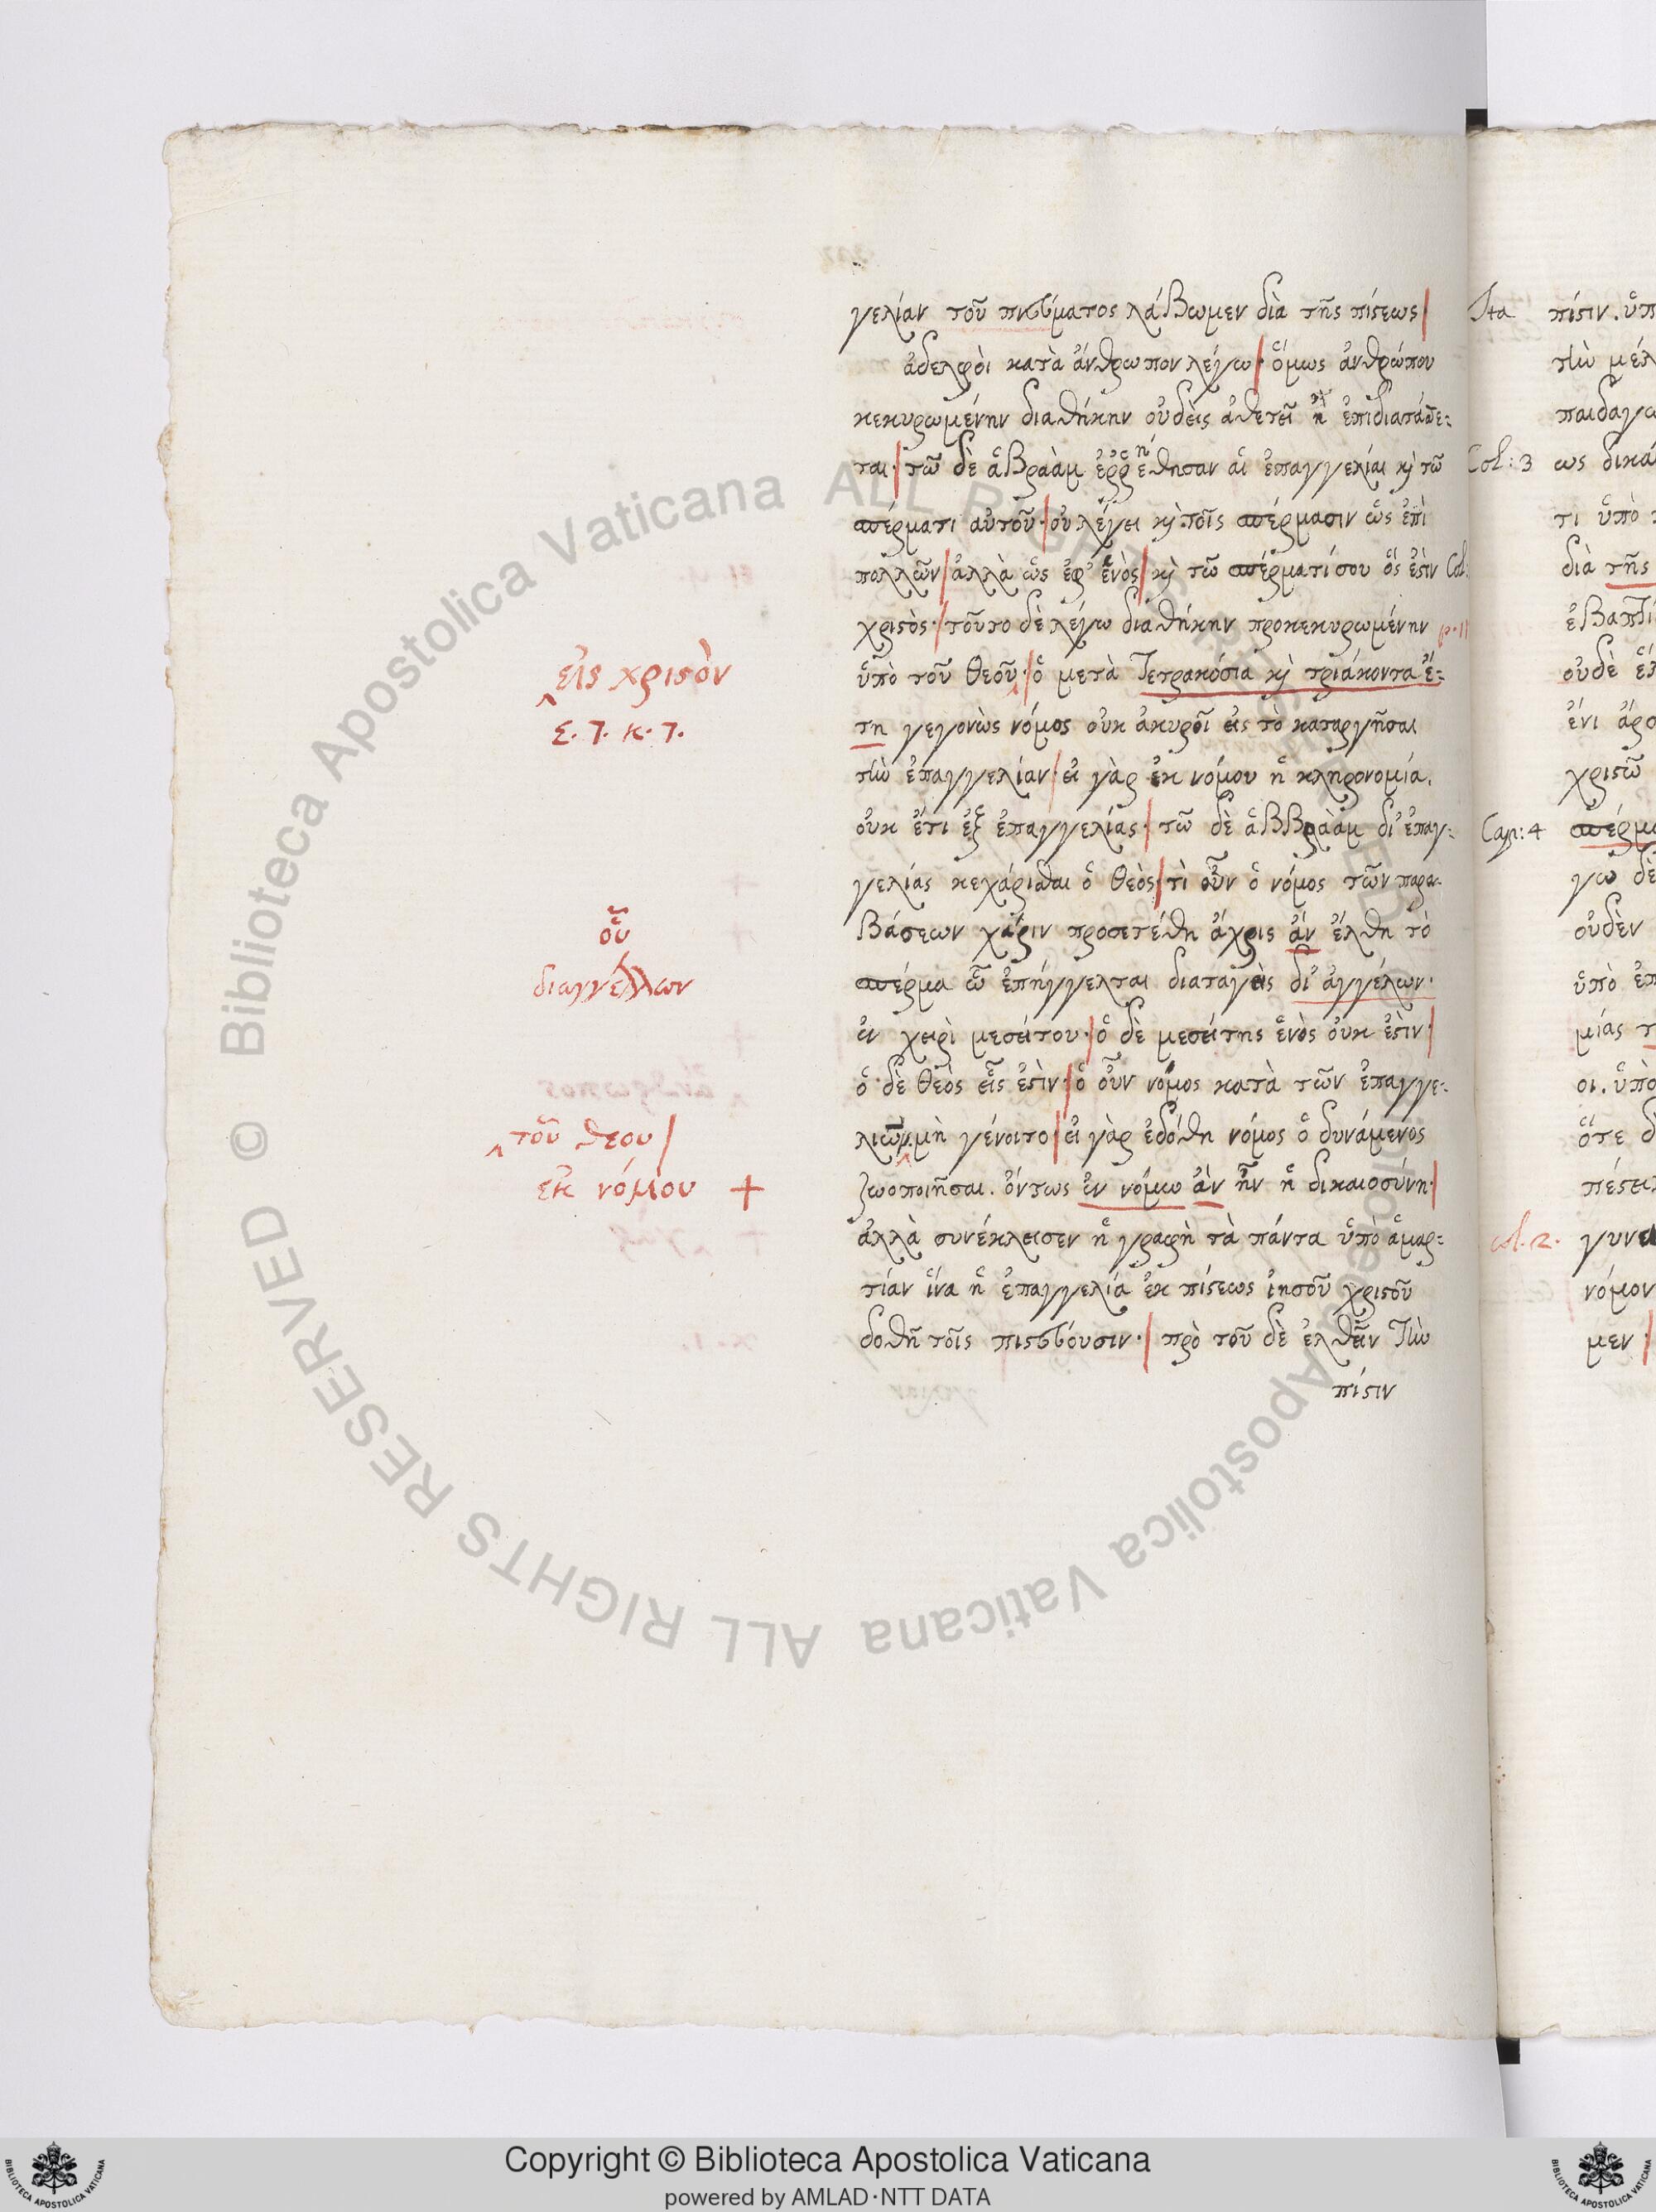 γελίαν τοῦ πνεύματος λάβωμεν διὰ τῆς πίστεως|
ἀδελφοὶ κατὰ ἄνθρωπον λέγω|· ὅμως ἀνθρώπου
κεκυρωμένην διαθήκην οὐδεὶς ἀθετεῖ ἢ ἐπιδιατάσσε-
ται·| τῶ δὲ ἁβραὰμ ἐῤῥέθησαν αἱ ἐπαγγελίαι κὶ τῶ
σπέρματι αὐτοῦ·| οὐ λέγει κὶ τοῖς σπέρμασιν ὡς ἐπὶ
πολλῶν| ἀλλὰ ὡς ἐφ' ἑνὸς| κὶ τῶ σπέρματί σου ὅς ἐστιν
χριστὸς·| τοῦτο δὲ λέγω διαθήκην προκεκυρωμένην
εἰς χριστὸν
ὑπὸ τοῦ θεοῦ·| ὁ μετὰ τετρακόσια κὶ τριάκοντα ἔ-
Σ. 7. κ. 7.
τη γεγονὼς νόμος οὐκ ἀκυροῖ εἰς τὸ καταργῆσαι
τὴν ἐπαγγελίαν·| εἰ γὰρ ἐκ νόμου ἡ κληρονομία.
οὐκ ἔτι ἐξ ἐπαγγελίας·| τῶ δὲ ἁββραὰμ δι' ἐπαγ-
γελίας κεχάρισθαι ὁ θεὸς·| τὶ οὖν ὁ νόμος τῶν παρα-
οὗ
βάσεων χάριν προσετέθη ἄχρις ἂν ἔλθη τὸ
διαγγέλλων
σπέρμα ὧ ἐπήγγελται διαταγεὶς δι' ἀγγέλων·
ἐν χειρὶ μεσείτου·| ὁ δὲ μεσείτης ἑνὸς οὐκ ἐστὶν·|
ὁ δὲ θεὸς εἷς ἐστὶν·| ὁ οὖν νόμος κατὰ τῶν ἐπαγγε-
τοῦ θεου|
λιῶν μὴ γένοιτο·| εἰ γὰρ ἐδόθη νόμος ὁ δυνάμενος
εκ νόμου +
ζωοποιῆσαι. ὄντως ἐν νόμω ἂν ἦν ἡ δικαιοσύνη·|
ἀλλὰ συνέκλεισεν ἡ γραφὴ τὰ πάντα ὑπὸ ἁμαρ-
τίαν ἵνα ἡ ἐπαγγελία ἐκ πίστεως ἰησοῦ χριστοῦ
δοθῆ τοῖς πιστεύουσιν·| πρὸ τοῦ δὲ ἐλθεῖν τὴν
πίστιν
Ita
πίστιν. ὑπ
τὴν μέλ
παιδαγω
Col: 3 ως δικα
τι ὑπὸ
Col:
διὰ τῆς
ἐβαπτί
οὐδὲ
ἑνι ἄρσ
χριστῶ
Cap: 4 σπέρμα
γω δὲ
οὐδὲν
ὑπὸ ἐπ
μίας τ
οι. ὑπὸ
ὅτε δ
col. 2. γυνα
νόμον
μεν·|
Biblioteca Apostolica Vaticana ALL RIGHTS RESERVED ©
Copyright © Biblioteca Apostolica Vaticana
powered by AMLAD·NTT DATA
BIBLIOTECA APOSTOLICA VATICANA
BIBLIOTECA APOSTOLICA VATICANA